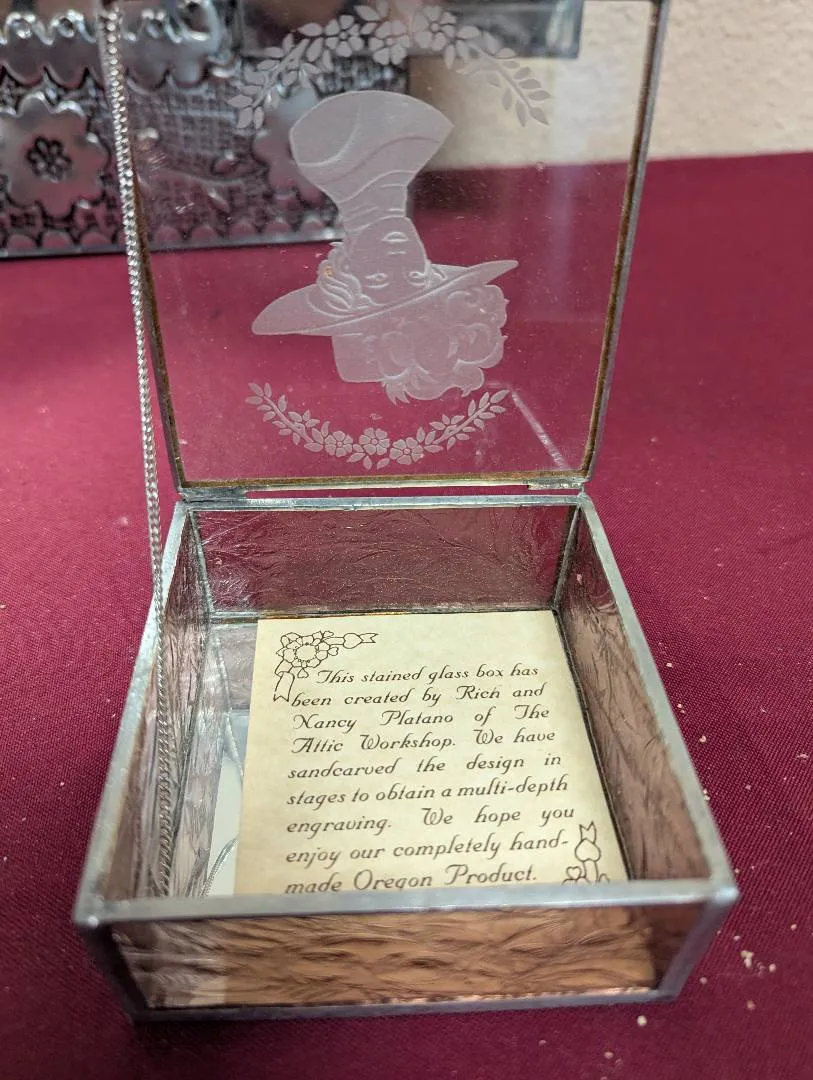 This stained glass box has
been created by Rich and
Nancy Platano of The
Attic Workshop. We have
sandcarved the design in
stages to obtain a multi-depth
engraving. We hope you
enjoy our completely hand-
made Oregon Product.